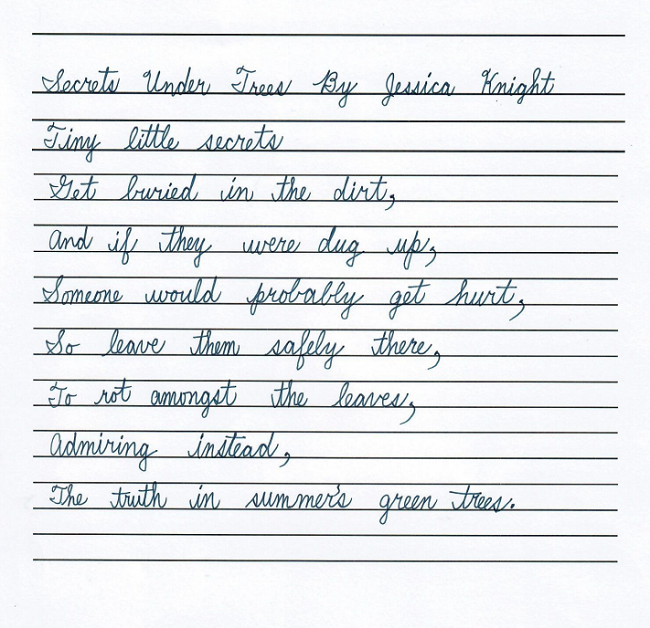 Secrets Under Trees By Jessica Knight
Tiny little secrets
Get buried in the dirt,
And if they were dug up,
Someone would probably get hurt,
So leave them safely there,
To rot amongst the leaves,
Admiring instead,
The truth in summer's green trees.